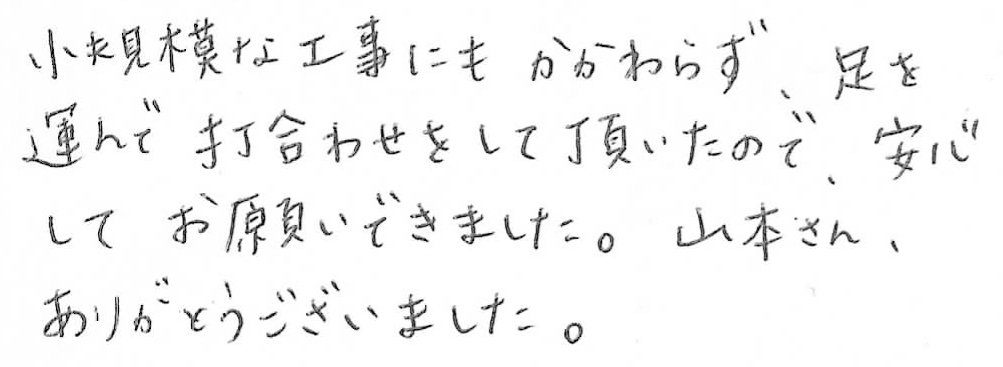 小規模な工事にもかかわらず、足を
運んで打合わせをして頂いたので、安心
してお願いできました。山本さん、
ありがとうございました。